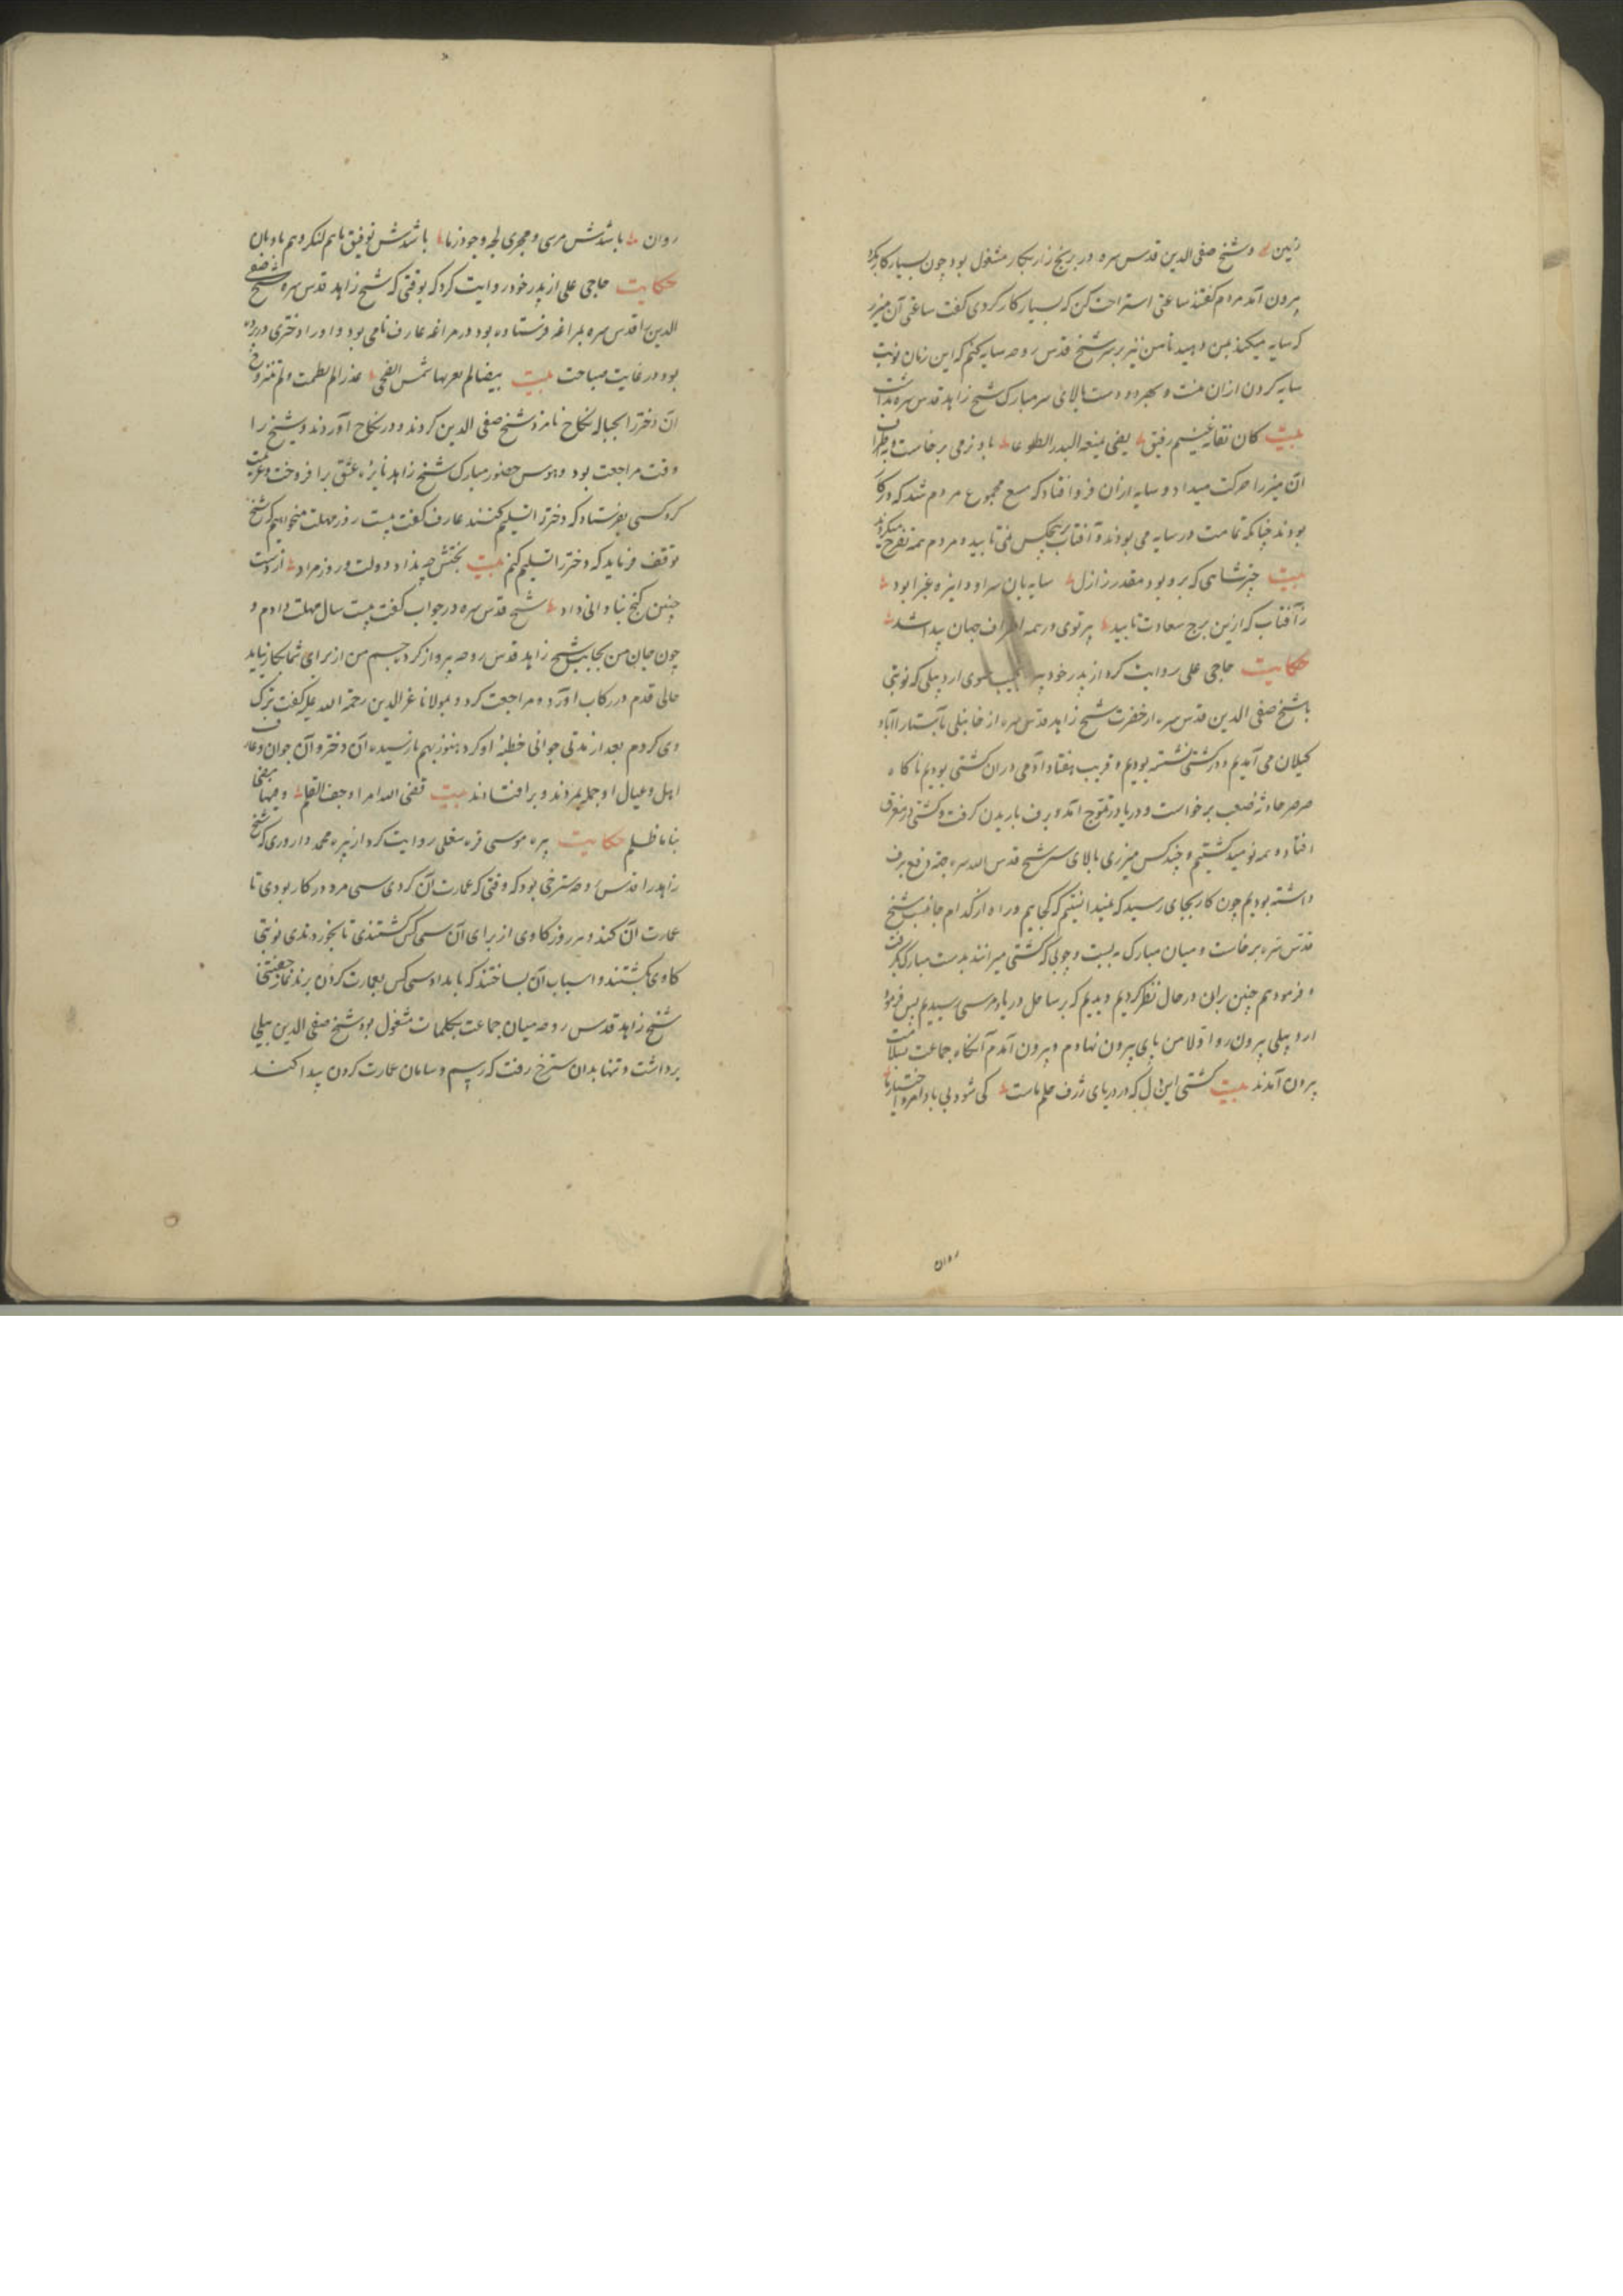 زمین و شیخ صفی الدین قدس سره در برنج زار بکار مشغول بود چون بسیار کار بکرد
بیرون آمد مردم گفتند ساعتی استراحت کن که بسیار کار کردی گفت ساعتی آن میزر
که سایه میکنند بمن دهید تا من نیز بر سر شیخ قدس روحه سایه کنم که این زمان نوبت
سایه کردن از ان منست و بهر دو دست بالای سر مبارک شیخ زاهد قدس سره بداشت
بیت کان رفیق یعنی البدر باد نرمی برخاست و اطراف
آن میزر را حرکت میداد و سایه از ان فرو افتاد که مجموع مردم شد که در کار
بودند چنانکه تمامت در سایه می بودند و آفتاب بر هیچکس نمی تابید و مردم همه تفرج میکردند
بیت چتر شاهی که برو بود مقدر ز ازل سایه بان سر او دایره غبرا بود
ز آفتاب که ازین برج سعادت تابید پرتوی در همه اطراف جهان پیدا شد
حکایت حاجی علی روایت کرد از پدر خود پیر اردبیلی که نوبتی
با شیخ صفی الدین قدس سره از حضرت شیخ زاهد قدس سره از خانبلی باستاراباد
کیلان می آمدیم و در کشتی نشسته بودیم و قریب هفتاد آدمی در ان کشتی بودیم ناکاه
صرصر حادثه صعب برخواست و دریا در تموج آمد و برف باریدن گرفت و کشتی در غرق
افتاد و همه نومید گشتیم و چند کس میزری بالای سر شیخ قدس الله سره جهة دفع برف
داشته بودیم چون کار بجای رسید که نمیدانستیم که کجاییم و راه از کدام جانبست شیخ
قدس سره برخاست و میان مبارک به بست و چوبی که کشتی میرانند بدست مبارک بگرفت
و فرمود هم چنین بران در حال نظر کردیم دیدیم که بر ساحل دریا و مرسی رسیدیم پس فرمود
اردبیلی بیرون رو اولا من پای بیرون نهادم و بیرون آمدم آنکاه جماعت بسلامت
بیرون آمدند بیت کشتی این دل که در دریای ژرف حلم ماست کی شود بی باد امر و اختیار ما
روان
روان باشدش مرسی و مجری لجه وجود ز ما باشدش توفیق ما هم لنکر و هم بادبان
حکایت حاجی علی از پدر خود روایت کرد که بوقتی که شیخ زاهد قدس سره شیخ صفی
الدین را قدس سره بمراغه فرستاده بود در مراغه عارف نامی بود و او را دختری در پرده
بود در غایت صباحت بیت بیضا لم شمس الضحی عذرا لم تطمث و لم تتزوج
آن دختر را بحباله نکاح نامزد شیخ صفی الدین کردند و در نکاح آوردند و شیخ را
وقت مراجعت بود و هوس حضور مبارک شیخ زاهد نایره عشق برافروخت و عزیمت
کرد کسی بفرستاد که دختر را تسلیم کنند عارف گفت بیست روز مهلت میخواهیم که شیخ
توقف فرماید که دختر را تسلیم کنم بیت بختش چه نداد دولت و روز مراد از دست
چنین کنج بنادانی داد شیخ قدس سره در جواب گفت بیست سال مهلت دادم و
چون جان من بجانب شیخ زاهد قدس روحه پرواز کرد جسم من از برای شما بکار نیاید
حالی قدم در رکاب آورد و مراجعت کرد و مولانا عز الدین رحمة الله علیه گفت ترک
وی کردم بعد از مدتی جوانی خطبه او کرد هنوز بهم نارسیده آن دختر و آن جوان و عارف
اهل و عیال او جمله بمردند و برافتادند بیت قضی الله امرا و جف القلم و فیما قضی
بنا ما ظلم حکایت پیره موسی قره مغلی روایت کرد از پیره محمد داروری که شیخ
زاهد را قدس روحه سترخی بود که وقتی که عمارت آن کردی سی مرد در کار بودی تا
عمارت آن کند و هر روز کاوی از برای آن سی کس کشتندی تا بخوردندی نوبتی
کاوی بکشتند و اسباب آن بساختند که بامداد سی کس بعمارت کردن برند نماز خفتن
شیخ زاهد قدس روحه میان جماعت بکلمات مشغول بود شیخ صفی الدین بیلی
برداشت و تنها بدان سترخ رفت که رسم و سامان عمارت کردن پیدا کند